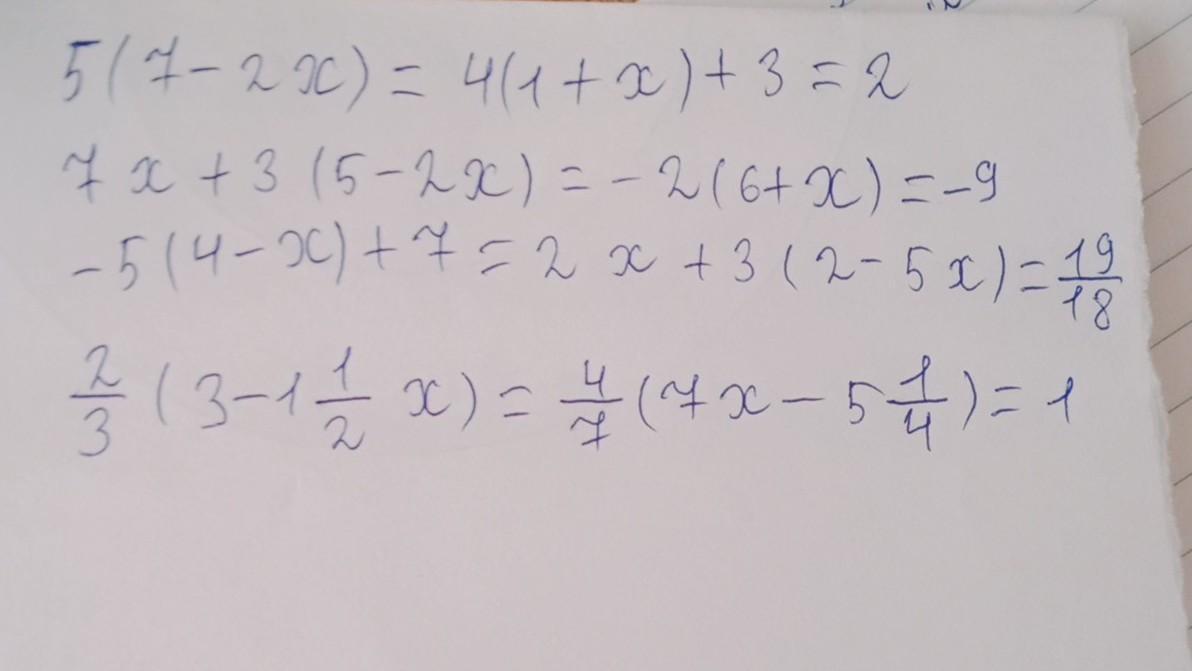 5(7-2x) = 4(1+x)+3 = 2
7x+3(5-2x) = -2(6+x) = -9
-5(4-x)+7 = 2x+3(2-5x) = 19/18
2/3(3-1 1/2 x) = 4/7(7x-5 1/4) = 1